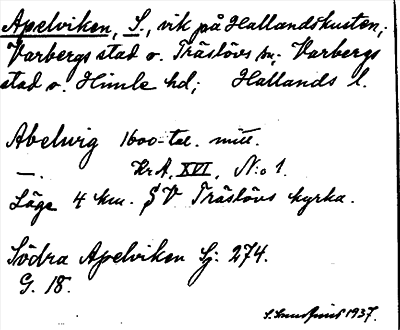 Apelviken, S., vik på Hallandskusten,
Varbergs stad o. Träslövs sn; Varbergs
stad o. Himle hd; Hallands l.
Abelwig 1600-tal. mitt.
—. KrA, XVI, N:o 1.
Läge 4 km. SV Träslövs kyrka.
Södra Apelviken Sj: 274.
G. 18.
1937.